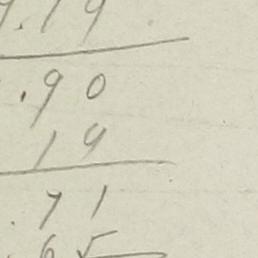 .19
.90
19
.71
.65